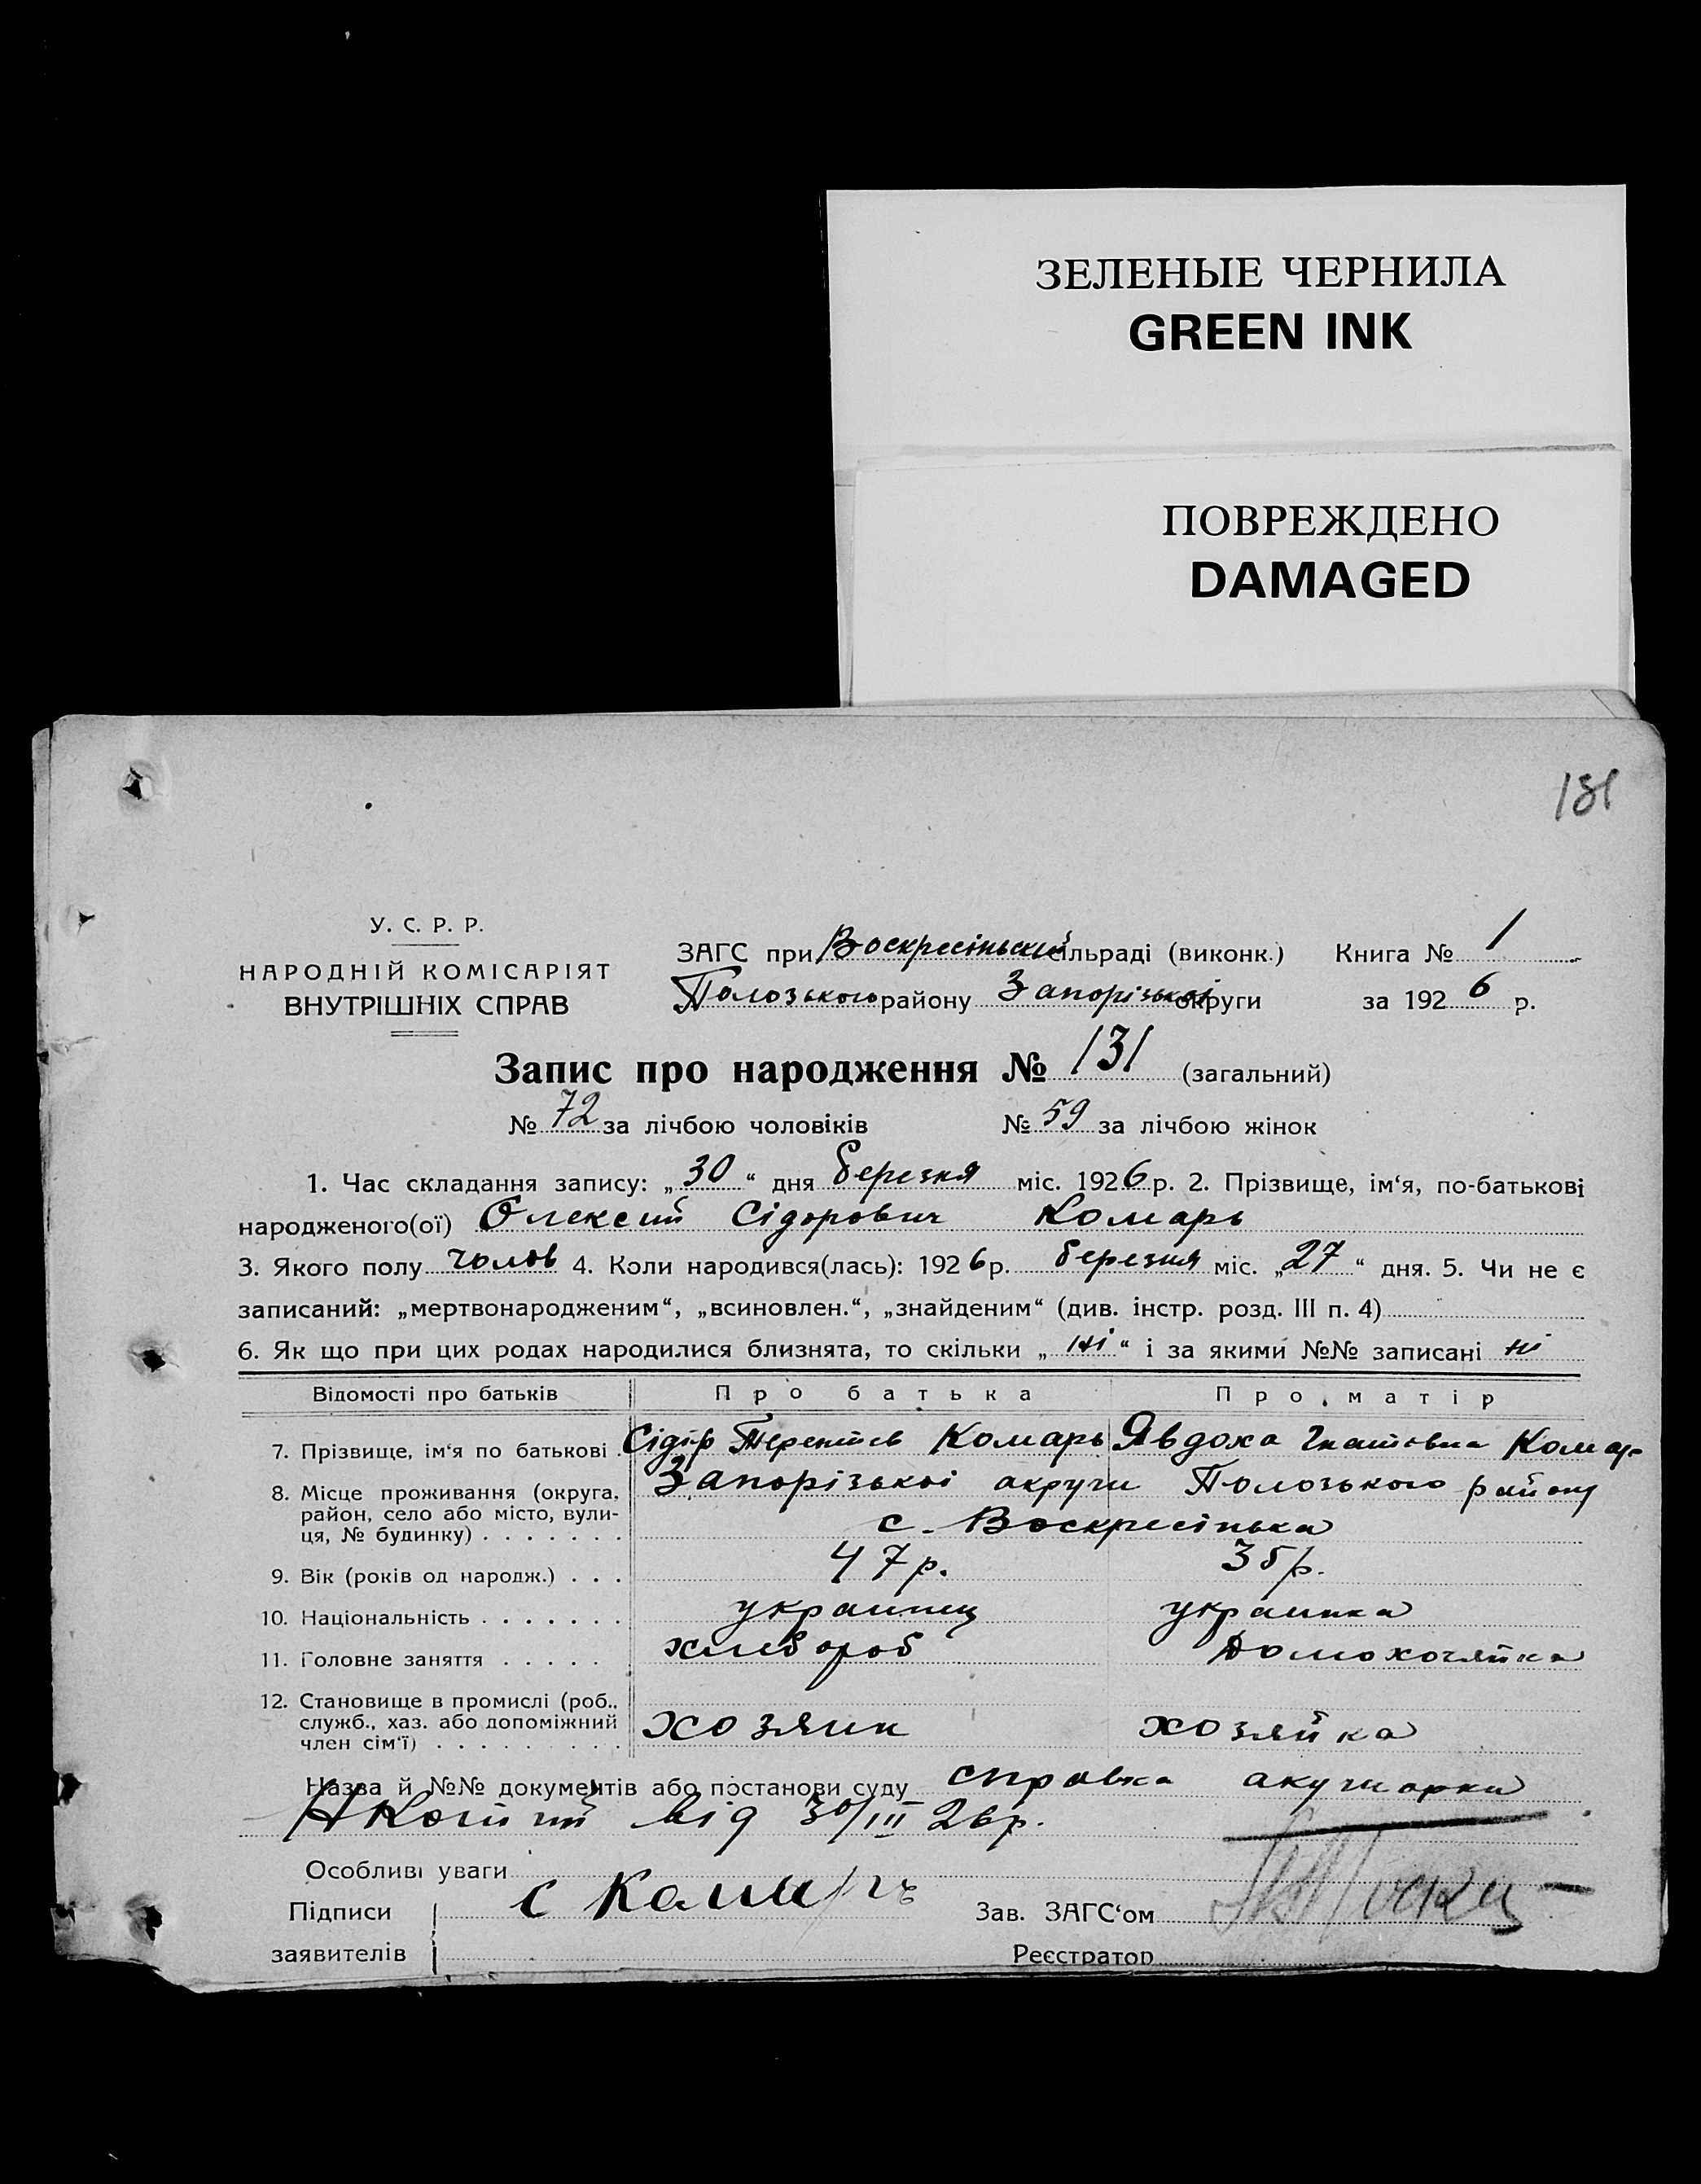 ЗЕЛЕНЫЕ ЧЕРНИЛА
GREEN INK
ПОВРЕЖДЕНО
DAMAGED
131
У. С. Р. Р.
НАРОДНІЙ КОМІСАРІЯТ
ВНУТРІШНІХ СПРАВ
ЗАГС при Воскресінський сільраді (виконк.) Книга № 1
Полозького району Запорізькоі округи за 1926 р.
Запис про народження № 131 (загальний)
№ 72 за лічбою чоловіків № 59 за лічбою жінок
1. Час складання запису: „30“ дня березня міс. 1926 р. 2. Прізвище, ім‘я, по-батькові
народженого(ої) Олексий Сідорович Комарь
3. Якого полу чолов 4. Коли народився(лась): 1926 р. березня міс. „27“ дня. 5. Чи не є
записаний: „мертвонародженим“, „всиновлен.“, „знайденим“ (див. інстр. розд. III п. 4)
6. Як що при цих родах народилися близнята, то скільки „ні“ і за якими №№ записані ні
Відомості про батьків Про батька Про матір
7. Прізвище, ім‘я по батькові Сідір Терентів Комарь Явдоха Гнатівна Комар
8. Місце проживання (округа, район, село або місто, вулиця, № будинку) Запорізькоі округи Полозького району
с. Воскресінька
9. Вік (років од народж.) 47 р. 35 р.
10. Національність украинец украинка
11. Головне заняття хлебороб Домохозяйка
12. Становище в промислі (роб.. служб., хаз. або допоміжний член сім‘ї) хозяин хозяйка
Назва й №№ документів або постанови суду справка акушорки
від 30/III 26 р.
Особливі уваги
Підписи С Комарь Зав. ЗАГС‘ом
заявителів Реєстратор